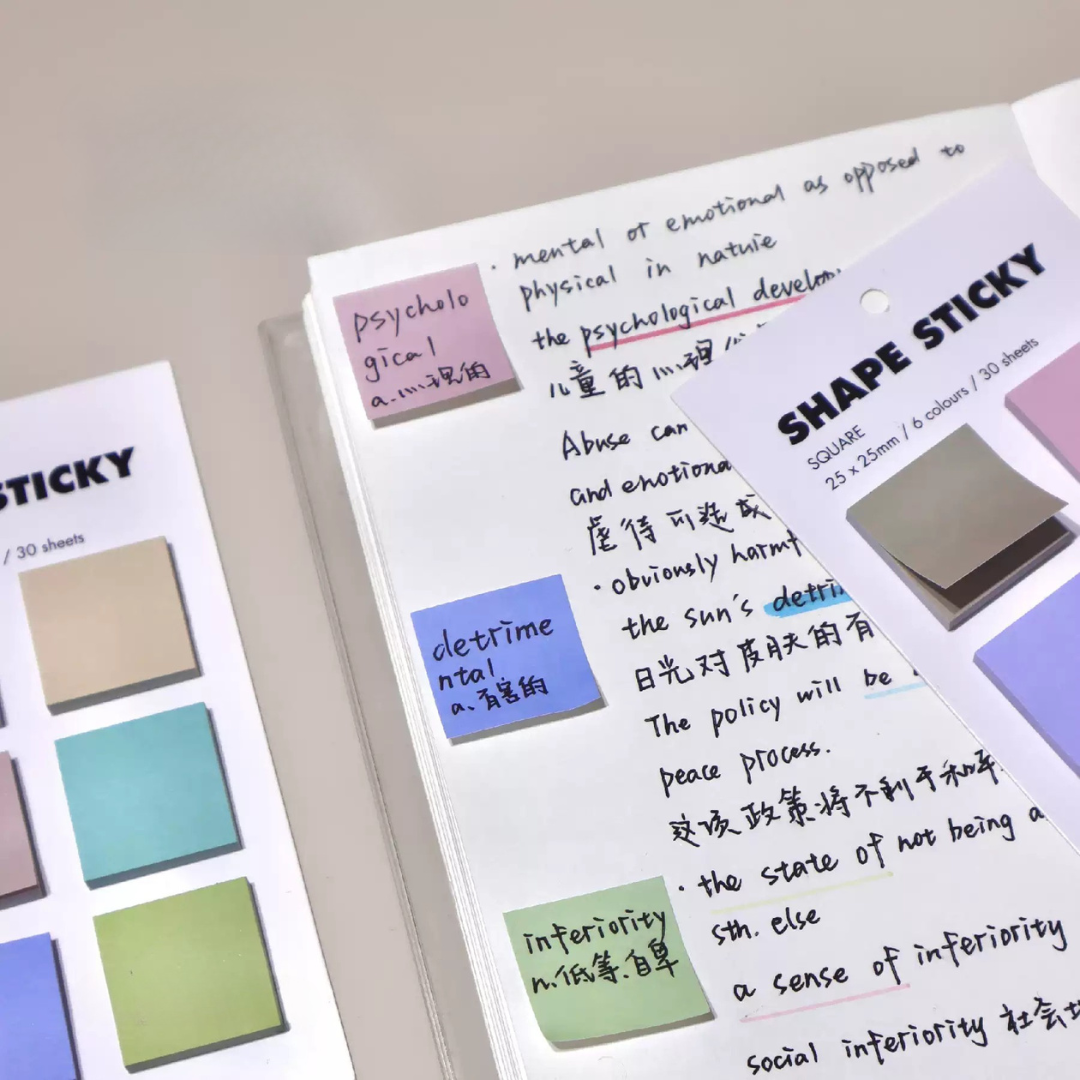 STICKY
/ 30 sheets
psycholo
gical
a.心理的
detrime
ntal
a.有害的
inferiority
n.低等.自卑
· mental or emotional as opposed to
physical in nature
the psychological develop
儿童的心理
Abuse can
and emotiona
虐待可造成
· obviously harmf
the sun's detri
日光对皮肤的有
The policy will be
peace process.
这项政策将不利于和平
· the state of not being a
sth. else
a sense of inferiority
social inferiority 社会地
SHAPE STICKY
SQUARE
25 x 25mm / 6 colours / 30 sheets